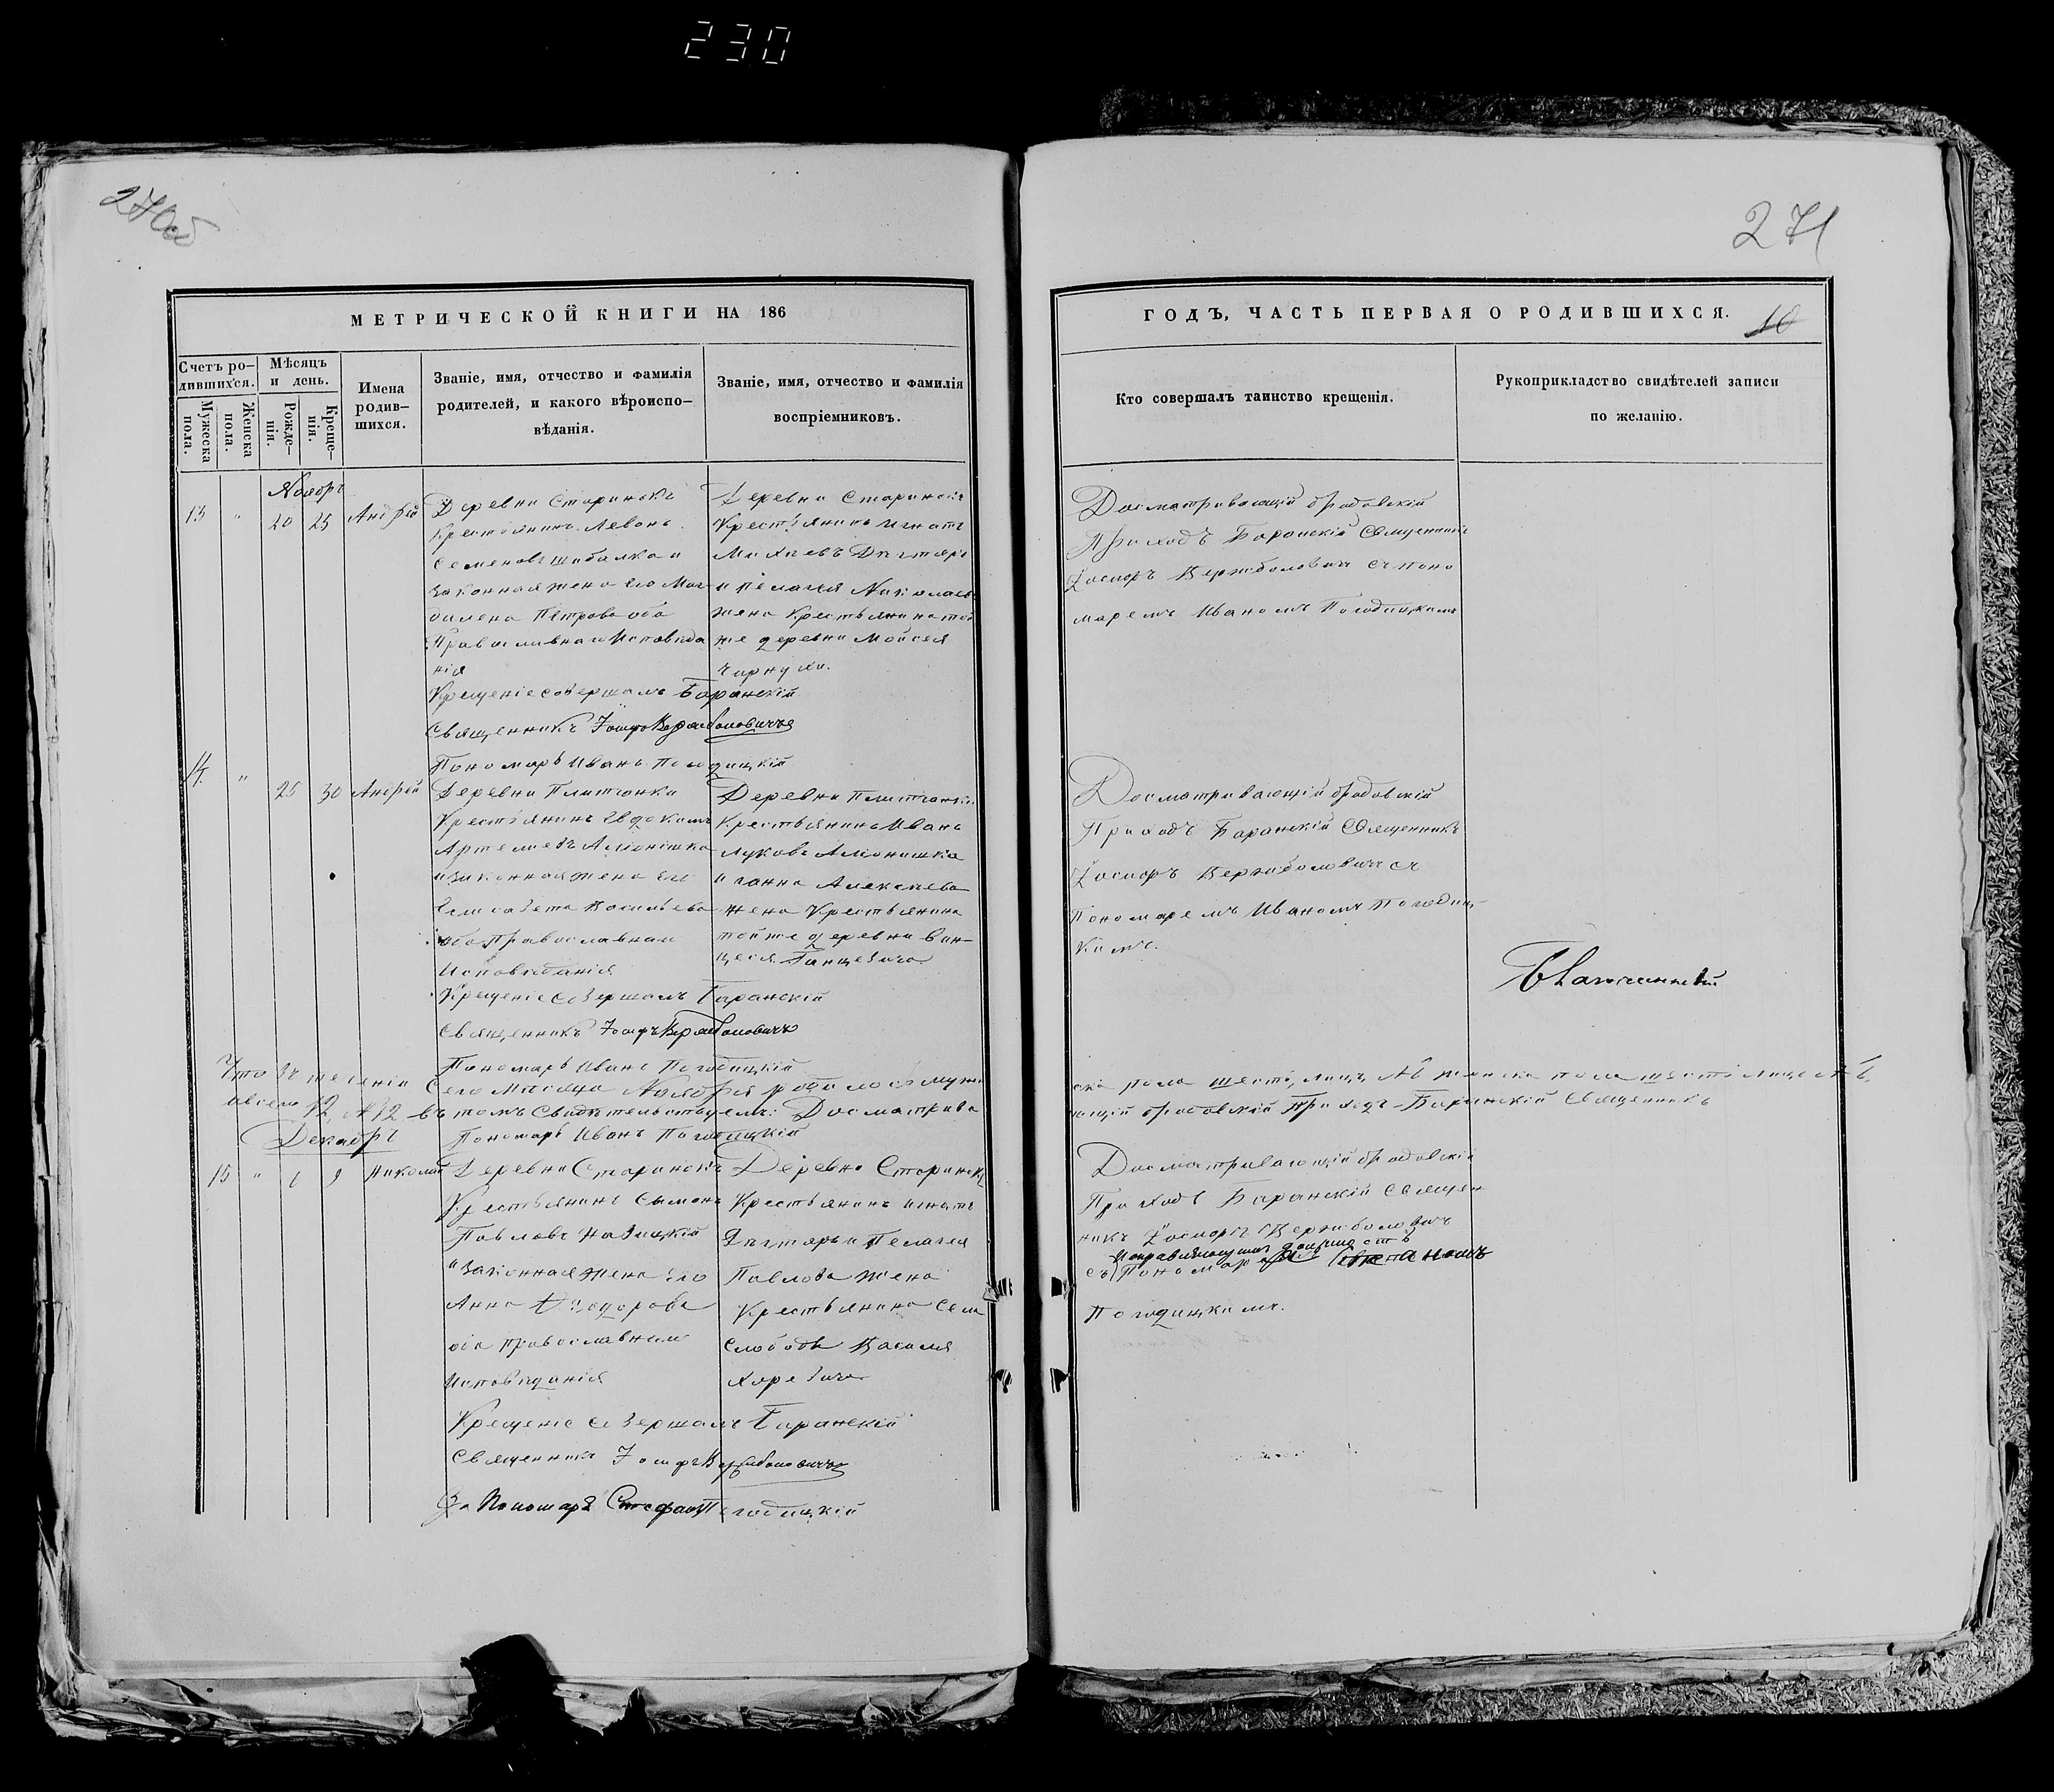 230
270об
271
МЕТРИЧЕСКОЙ КНИГИ НА 186
Счетъ ро-
дившихся.
Мужеска
пола.
Женска
пола.
Мѣсяцъ
и день.
Рожде-
нія.
Креще-
нія.
Имена
родив-
шихся.
Званіе, имя, отчество и фамилія
родителей, и какого вѣроиспо-
вѣданія.
Званіе, имя, отчество и фамилія
воспріемниковъ.
Ноябрь
13 " 20 25 Андрей
Деревни Старинокъ
Крестьянинъ Леонъ
Семеновъ
законная жена его Маг-
далена Петрова оба
Православнаго Исповѣда
нія
Деревни Старинокъ
Крестьянинъ Игнатъ
Дегтярь
и Пелагея Николаева
жена Крестьянина той
же деревни Мойсея
Чарнухи.
Крещеніе совершалъ Баранскій
Священникъ Іосифъ Вержболовичъ
Пономарь Иванъ Погодицкій
14 " 25 30 Андрей
Деревни Плитчанки
Крестьянинъ Евдокимъ
Артемьевъ
и законная жена его
Елисавета Васильева
оба Православнаго
Исповѣданія
Деревни Плитчанки
Крестьянинъ Иванъ
Луковъ
и Ганна Алексѣева
жена Крестьянина
той же деревни Вин-
цеся Ганцевича
Крещеніе совершалъ Баранскій
Священникъ Іосифъ Вержболовичъ
Пономарь Иванъ Погодицкій
Что въ теченіи сего мѣсяца Ноября родилось муже
всего 12 №12 въ томъ свидѣтельствуемъ: Досматрива
Пономарь Иванъ Погодицкій
Декабрь
15 " 6 9 Николай
Деревни Старинокъ
Крестьянинъ Сымонъ
Павловъ
и законная жена его
Анна Ѳеодорова
оба православнаго
Исповѣданія
Деревни Старинокъ
Крестьянинъ Игнатъ
Дегтярь и Пелагея
Павлова жена
Крестьянина села
Слободы Василія
Харевича
Крещеніе совершалъ Баранскій
Священникъ Іосифъ Вержболовичъ
За Пономаря Стефанъ Погодицкій
ГОДЪ, ЧАСТЬ ПЕРВАЯ О РОДИВШИХСЯ.
10
Кто совершалъ таинство крещенія.
Рукоприкладство свидѣтелей записи
по желанію.
Досматривающій бродовскій
Приходъ Баранскій Священникъ
Іосифъ Вержболовичъ съ поно
маремъ Иваномъ Погодицкимъ
Досматривающій бродовскій
Приходъ Баранскій Священникъ
Іосифъ Вержболовичъ съ
Пономаремъ Иваномъ Погодиц-
кимъ.
ска пола шесть лицъ №6 женска пола шесть лицъ №6,
ющій бродовскій Приходъ Баранскій Священникъ
Досматривающій бродовскій
Приходъ Баранскій Священ
никъ Іосифъ Вержболовичъ
исправляющимъ должность
съ Пономаря Стефаномъ
Погодицкимъ.